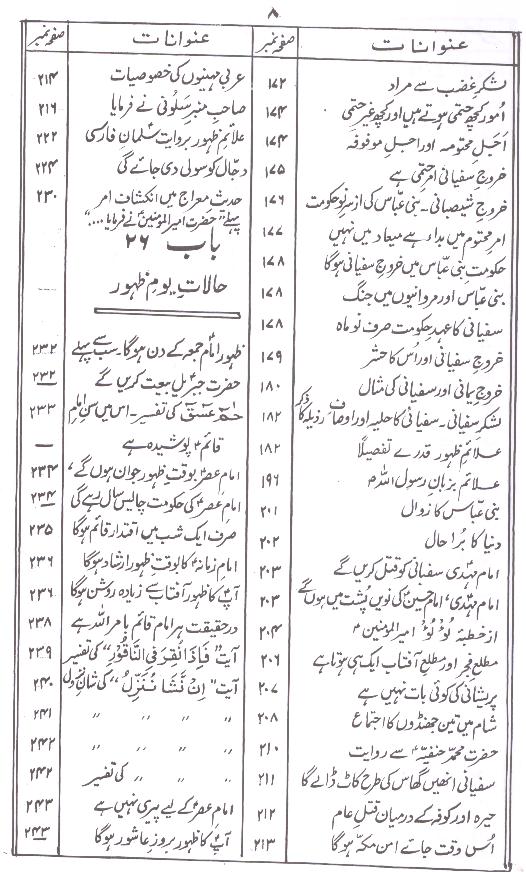 ۸
عنوانات
صفحہ نمبر
لشکرِ غضب سے مراد
۱۷۲
اُمور کچھ حتمی ہوتے ہیں اور کچھ غیر حتمی
۱۷۴
اَجَلِ محتومہ اور اجلِ موقوفہ
۱۷۴
خروجِ سفیانی امرِ حتمی ہے
۱۷۵
خروجِ شیصبانی۔ بنی عبّاس کی از سرِ نو حکومت
۱۷۶
امرِ محتوم میں بداء ہے میعاد میں نہیں
۱۷۷
حکومتِ بنی عبّاس میں خروجِ سفیانی ہوگا
۱۷۸
بنی عبّاس اور مروانیوں میں جنگ
۱۷۸
سفیانی کا عہدِ حکومت صرف نو ماہ
۱۷۸
خروجِ سفیانی اور اُس کا حشر
۱۷۹
خروجِ یمانی اور سفیانی کی مثال
۱۸۰
لشکرِ سفیانی۔ سفیانی کا حلیہ اور اوصافِ رذیلہ کا ذکر
۱۸۲
علائمِ ظہور قدرے تفصیلاً
۱۸۲
علائم بزبانِ رسول اللہؐ
۱۹۶
بنی عبّاس کا زوال
۲۰۱
دنیا کا بُرا حال
۲۰۲
امام مہدیؑ سفیانی کو قتل کریں گے
۲۰۳
امام مہدیؑ، امام حسینؑ کی نویں پشت میں ہوں گے
۲۰۳
از خطبۂ لُؤلُؤ امیر المؤمنینؑ
۲۰۴
مطلعِ فجر اور مطلعِ آفتاب ایک ہی ہوتا ہے
۲۰۶
پریشانی کی کوئی بات نہیں ہے
۲۰۷
شام میں تین جھنڈوں کا اجتماع
۲۰۸
حضرت محمد حنفیہؓ سے روایت
۲۱۰
سفیانی انھیں گھاس کی طرح کاٹ ڈالے گا
۲۱۱
حیرہ اور کوفہ کے درمیان قتلِ عام
۲۱۲
اُس وقت جائے امن مکّہ ہوگا
۲۱۳
عنوانات
صفحہ نمبر
عربی مہینوں کی خصوصیات
۲۱۴
صاحبِ منبرِ سلونی نے فرمایا
۲۱۶
علائمِ ظہور بروایت سلمان فارسی
۲۲۲
دجّال کو سولی دی جائے گی
۲۲۴
حدیثِ معراج میں انکشافاتِ امر
۲۳۰
پہلے "حضرت امیر المؤمنینؑ نے فرمایا ..."
باب ۲۶
حالاتِ یومِ ظہور
ظہورِ امامؑ جمعہ کے دن ہوگا۔ سب سے پہلے
۲۳۲
حضرت جبرئیل بیعت کریں گے
۲۳۲
حٰمٓ عٓسٓقٓ کی تفسیر۔ اس میں سنِ امامِ
۲۳۳
قائمؑ پوشیدہ ہے
—
امامِ عصرؑ بوقتِ ظہور جوان ہوں گے،
۲۳۴
امامِ عصرؑ کی حکومت چالیس سال رہے گی
۲۳۴
صرف ایک شب میں اقتدار قائم ہوگا
۲۳۵
امامِ زمانہؑ کا بوقتِ ظہور ارشاد ہوگا
۲۳۶
آپؑ کا ظہور آفتاب سے زیادہ روشن ہوگا
۲۳۶
درحقیقت ہر امام قائم بامر اللہ ہے
۲۳۸
آیت "فَإِذَا نُقِرَ فِي النَّاقُوْرِ" کی تفسیر
۲۳۹
آیت "اِنْ نَّشَأْ نُنَزِّلْ" کی شانِ نزول
۲۴۰
〃 〃 〃 〃
۲۴۱
〃 〃 〃 〃
۲۴۲
〃 〃 〃 کی تفسیر
۲۴۲
امامِ عصرؑ کے لیے پیری نہیں ہے
۲۴۳
آپؑ کا ظہور بروزِ عاشور ہوگا
۲۴۳